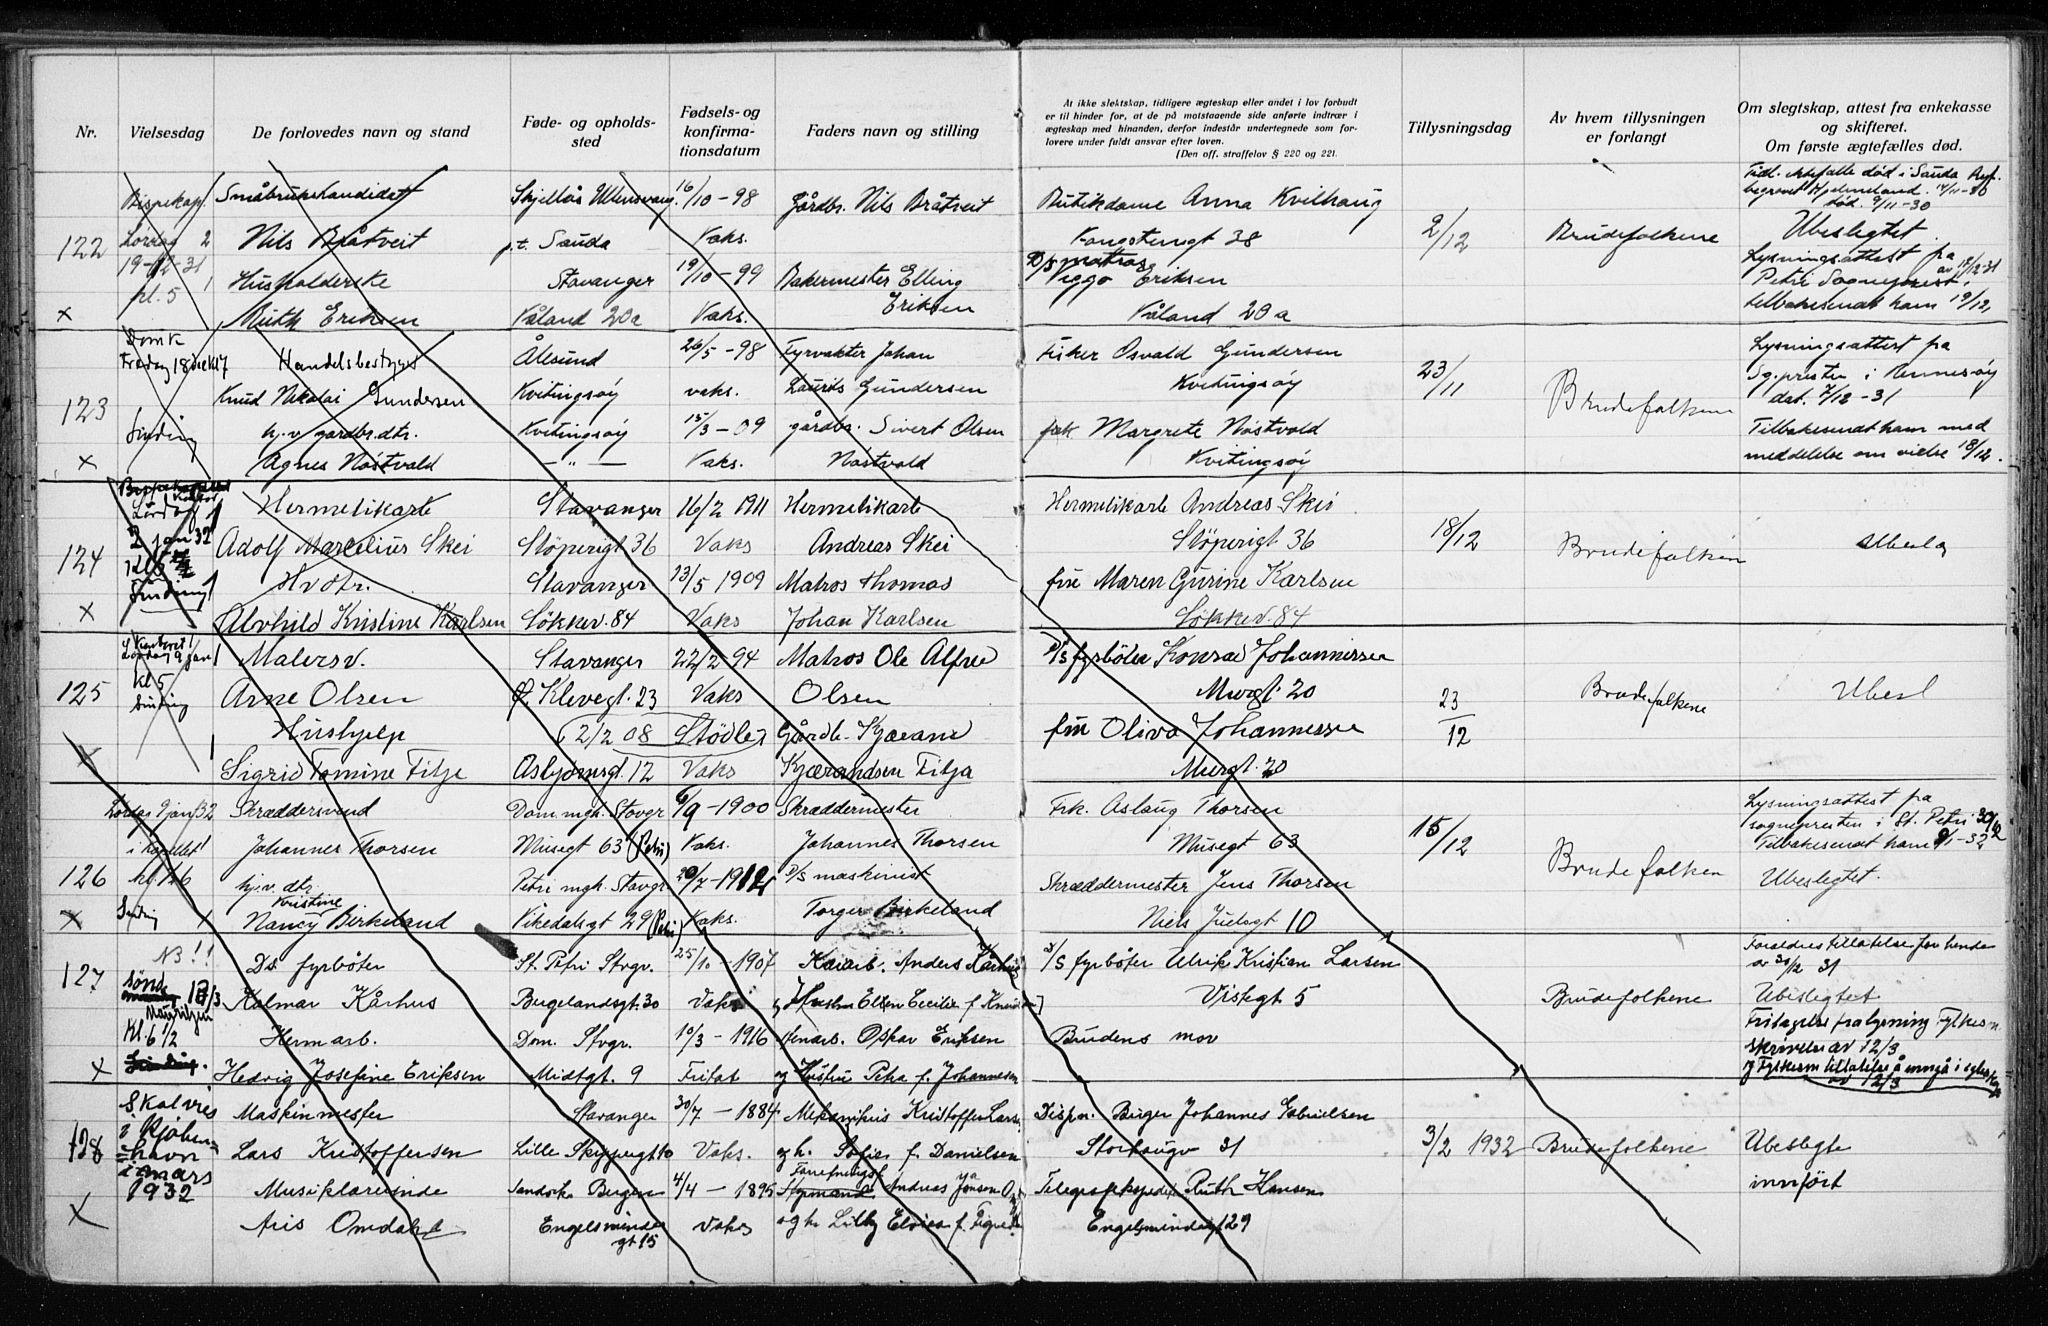 Nr.
Vielsesdag
De forlovedes navn og stand
Føde- og opholds-
sted
Fødsels- og
konfirma-
tionsdatum
Faders navn og stilling
At ikke slektskap, tidligere ægteskap eller andet i lov forbudt
er til hinder for, at de på motstaaende side anførte indtrær i
ægteskap med hinanden, derfor indestår undertegnede som for-
lovere under fuldt ansvar efter loven.
(Den off. straffelov § 220 og 221.
Tillysningsdag
Av hvem tillysningen
er forlangt
Om slegtskap, attest fra enkekasse
og skifteret.
Om første ægtefælles død.
122
Bispekap.
Lørdag 2
19-12-31
kl. 5
x
Småbrukskandidat
Nils Bråtveit
Husholderske
Ruth Eriksen
Skjellås Ullensvang
p.t. Sauda
Stavanger
Våland 20a
16/10-98
Vaks.
19/10-99
Vaks.
Gårdbr. Nils Bråtveit
Bakermester Elling
Eriksen
Butikdame Anna Kvilhaug
Kongstensgt 38
D/s matros
Viggo Eriksen
Våland 20a
2/12
Brudefolkene
død. 9/11-30
Ubeslegtet
Lysningsattest fra
Petri Sogneprest,
tilbakesendt ham 19/12,
123
Domk
Fredag 18 dec kl 7
Sinding
x
Handelsbestyrer
Knud Nikolai Gundersen
hj.v. gardbr.dtr.
Agnes Nåstvold
Ålesund
Kvitingsøy
Kvitingsøy
— " —
26/5-98
vaks.
15/3-09
Vaks.
Fyrvakter Johan
Laurits Gundersen
gårdbr. Sivert Olsen
Nåstvold
Fisker Osvald Gundersen
Kvitingsøy
frk Margrete Nåstvold
Kvitingsøy
23/11
Brudefolkene
Lysningsattest fra
Sg.presten i Rennesøy
dat. 7/12-31
Tilbakesendt ham med
meddelelse om vielse 18/12.
124
Lørdag
2 jan 32
Sinding
x
Hermetikarb
Adolf Marcelius Skei
Hvdtr.
Alvhild Kristine Karlsen
Stavanger
Støperigt 36
Stavanger
Søkkev. 84
16/2 1911
Vaks
13/5 1909
Vaks
Hermetikarb
Andreas Skei
Matros Thomas
Johan Karlsen
Hermetikarb Andreas Skei
Støperigt 36
fru Maren Gurine Karlsen
Søkkev. 84
18/12
Brudefolken
Ubesla
125
Lørdag 9 jan
kl 5
Sinding
x
Malersv.
Arne Olsen
Hushjelp
Sigrid Tomine Fitja
Stavanger
Ø. Klevegt. 23
2/2 08 Stødle
Asbjørnsgt. 12
22/2 94
Vaks
Vaks
Matros Ole Alfred
Olsen
Gårdb. Kjærand
Kjærandsen Fitja
D/S fyrbøter Konrad Johannessen
Murgt. 20
fru Oliva Johannessen
Murgt. 20
23/12
Brudefolkene
Ubesl
126
Lørdag 9 jan 32
i kapellet
Sinding
x
Skræddersvend
Johannes Thorsen
hj.v. dtr
Kristine
Nancy Birkeland
Dom. mgh. Stavgr
Musegt 63 (Petri)
Petri mgh. Stavgr
Vikedalsgt 29 (Petri)
6/9-1900
Vaks.
20/7-1912
Vaks.
Skræddermester
Johannes Thorsen
D/S maskinist
Torger Birkeland
Frk. Aslaug Thorsen
Musegt 63
Skræddermester Jens Thorsen
Niels Juelsgt 10
15/12
Brudefolken
Lysningsattest fra
sognepresten i St. Petri 30/12
Tilbakesendt ham 9/1-32
Ubeslegtet.
127
NB!!
Kl. 6 1/2
x
Ds. fyrbøter
Kolmar Kårhus
Hermarb.
Hedvig Josefine Eriksen
St. Petri Stvgr.
Bugelandsgt. 30
Dom. Stvgr.
Midtgt. 9
25/10-1907
Vaks
10/3-1916
Fritat
Kaiarb. Anders Kårhus
og Hustru Ellen Cecilie f. Knudsen
Hermarb. Oskar Eriksen
og Hustru Petra f. Johannesen
D/S fyrbøter Ulrik Kristian Larsen
Vistegt 5
Brudens mor
Brudefolkene
Foreldres tillatelse for hende
av 30/2 31
Ubeslegtet
Fritagelse fra lysning Fylkesm.
skrivelse av 12/3
av 12/3
128
Skal vies
i Kjøben=
=havn
i mars
1932
x
Maskinmester
Lars Kristoffersen
Musiklærerinde
Aris Omdal
Stavanger
Lille Skippergt 10
Sandvika Bergen
Engelsminde
gt 15
30/7-1884
Vaks.
4/4-1895
Vaks
Mekanikus Kristoffer Larsen
og h. Sofie f. Danielsen
Forretningsf.
Styrmand Andreas Jonsen
Dispon. Birger Johannes Gabrielsen
Storhaugv 31
Telegrafeksped. Ruth Hansen
Engelsmindegt 29
3/2 1932
Brudefolkene
Ubeslegte
innført